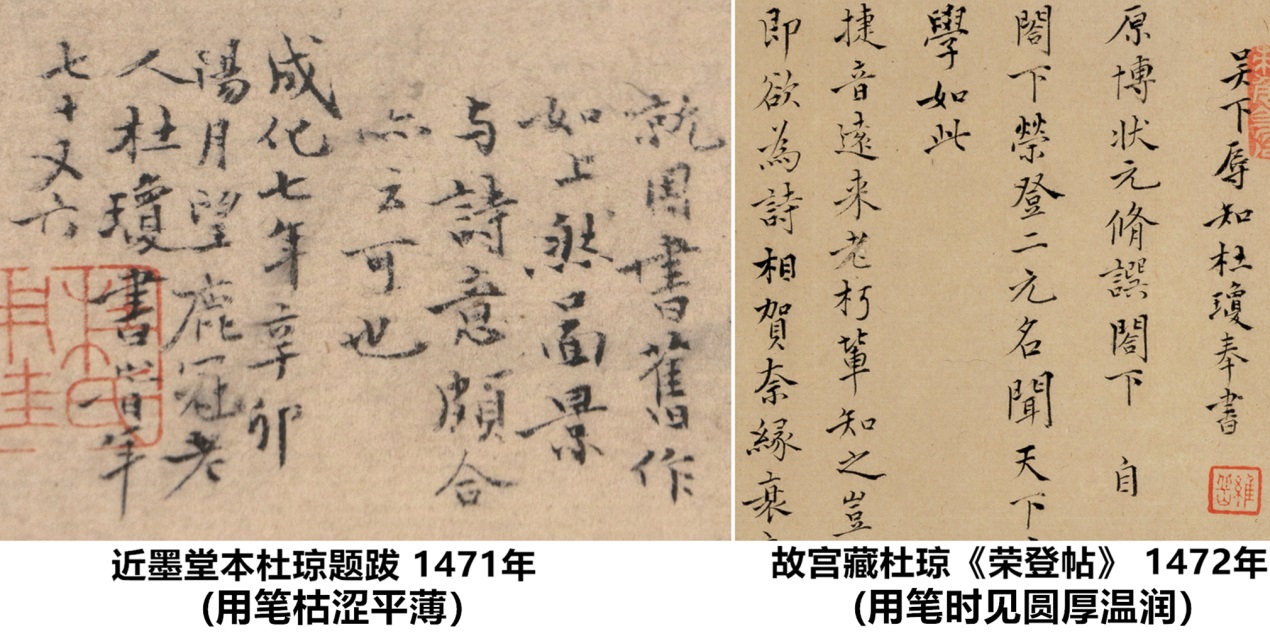 就因書舊作
如上然啚景
与詩意頗合
亦云可也
成化七年辛卯
陽月望鹿冠老
人杜瓊書旹年
七十又六
吴下辱知杜瓊奉書
原博狀元脩譔閤下 自
閤下榮登二元名聞天下
學如此
捷音遠来老朽軰知之豈
即欲為詩相賀奈緣衰
近墨堂本杜琼题跋 1471年
(用笔枯涩平薄)
故宫藏杜琼《荣登帖》 1472年
(用笔时见圆厚温润)